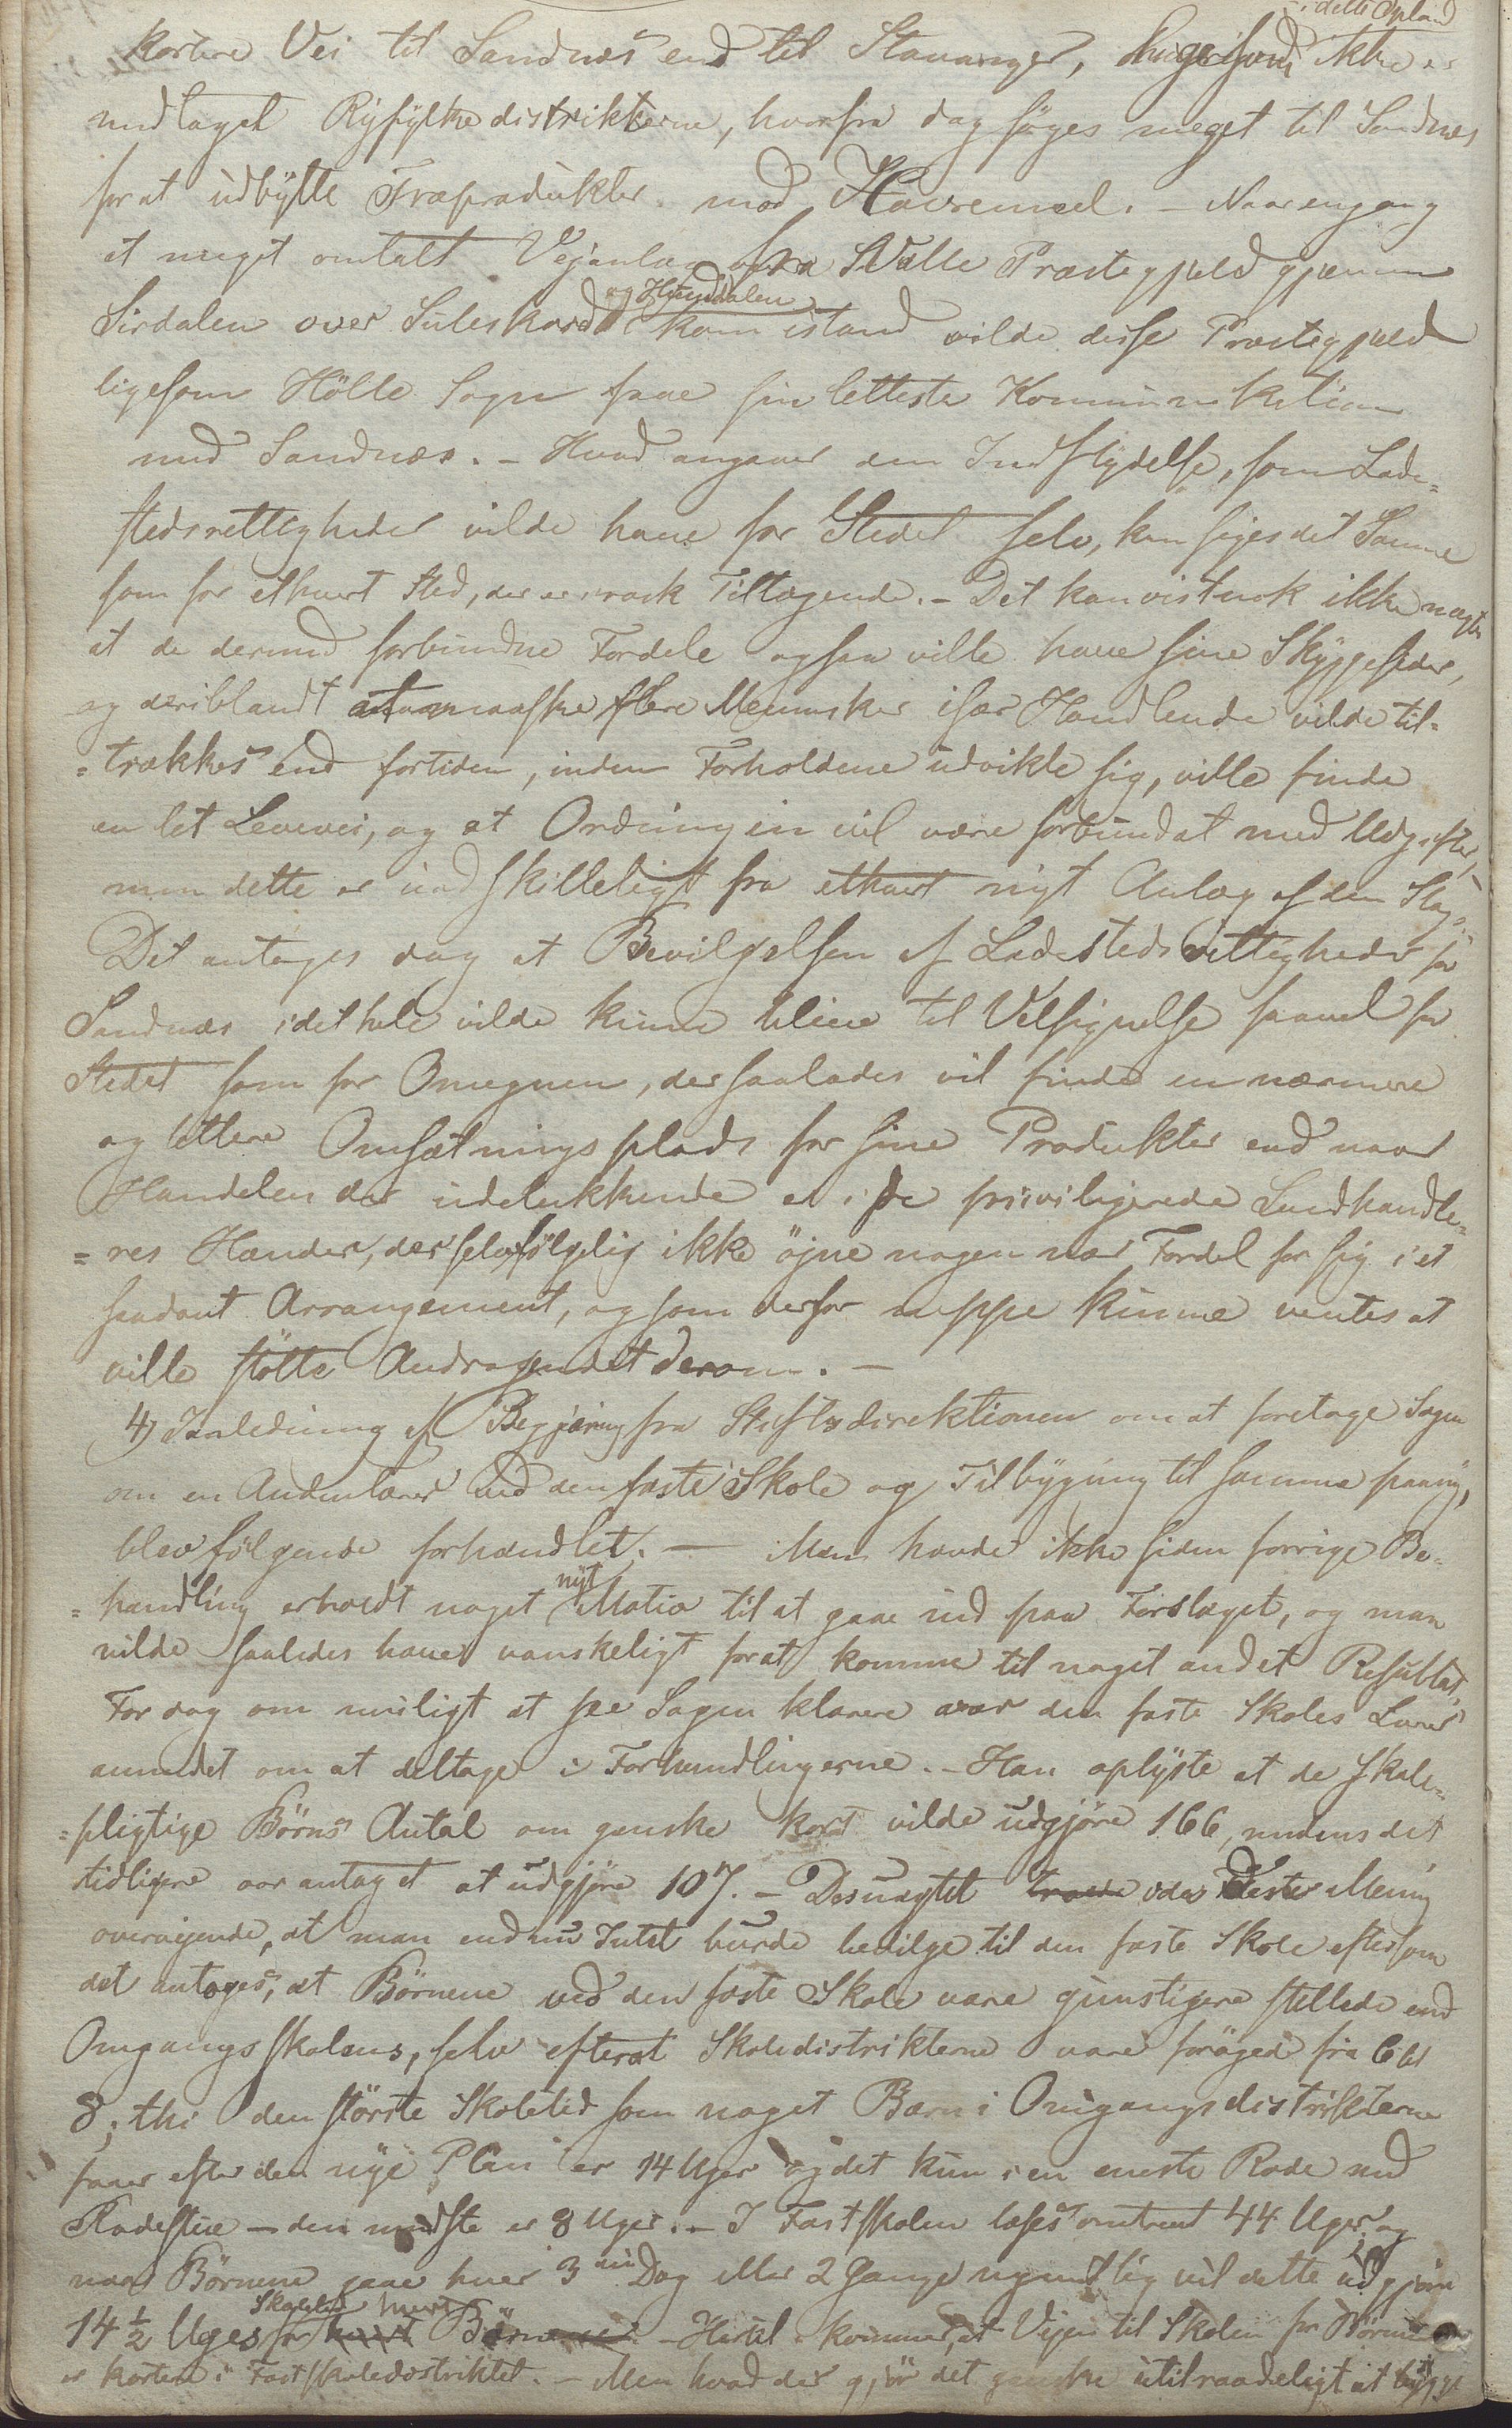 i dette Opland
kortere Vei til Sandnæs end til Stavanger, ligesom ikke er
undtaget Ryfylkedistrikterne, hvorfra dog søges meget til Sandnæs
for at udbytte Træprodukter mod Havremel. – Naar engang
et meget omtalt Vejanlæg fra Valle Præstegjæld gjennem
Sirdalen over Suleskard og Hunddalen kom istand vilde disse Præstegjæld
ligesom Hölle Sogn faae sin letteste Kommunikation
med Sandnæs. – Hvad angaaer den Indflydelse, som Lade=
stedsrettigheder vilde have for Stedet selv, kan siges det Samme
som for ethvert Sted, der er i rask Tiltagende. – Det kan vistnok ikke nægtes
at de dermed forbundne Fordele ogsaa ville have sine Skyggesider,
og deriblandt at maaske flere Mennesker især Handlende vilde til=
=trækkes end fortiden, inden Forholdene udvikle sig, ville finde
en let Levevei, og at Ordningen vil være forbundet med Udgifter,
men dette er uadskilleligt fra ethvert nyt Anlæg af den Slags.
Det antages dog at Bevilgelsen af Ladestedsrettigheder for
Sandnæs idethele vilde kunne blive til Velsignelse saavel for
Stedet som for Omegnen, der saaledes vil finde en nærmere
og lettere Omsætningsplads for sine Produkter end naar
Handelen der udelukkende er i de priviligerede Landhandle=
=res Hænder, der selvfølgelig ikke öjne nogen nær Fordel for sig i et
saadant Arrangement, og som derfor neppe kunne ventes at
ville stötte Andragendet derom. –
4) I Anledning af Begjæring fra Stiftsdirektionen om at foretage Sagen
om en Andenlærer ved den faste Skole og Tilbygning til samme paany,
blev følgende forhandlet. – Man havde ikke siden forrige Be=
=handling erholdt noget nyt Motiv til at gaae ind paa Forslaget, og man
vilde saaledes have vanskeligt for at komme til noget andet Resultat.
For dog om muligt at see Sagen klarere var den faste Skoles Lærer
anmodet om at deltage i Forhandlingerne. – Han oplyste at de skole=
=pligtige Börns Antal om ganske kort vilde udgjöre 166, medens det
tidligere var antaget at udgjøre 107. – Desuagtet var Mening
overvejende, at man endnu Intet burde bevilge til den faste Skole eftersom
det antoges, at Börnene ved den faste Skole vare gunstigere stillede end
Omgangsskolens, selv efterat Skoledistrikterne vare forøgede fra 6 til
8; thi den störste Skoletid som noget Barn i Omgangsdistrikterne
faaer efter den nye Plan er 14 Uger og det kun i en eneste Rode med
Rodestue – den mindste er 8 Uger. – I Fastskolen læses omtrent 44 Uger, og
naar Börnene gaae hver 3die Dag eller 2 Gange ugentlig vil dette udgjöre
14½ Uges Skoletid for hvert Barn. – Hertil kommer, at Vejen til Skolen for Börnene
er kortere i Fastskoledistriktet. – Men hvad der gjör det ganske utilraadeligt at bygge